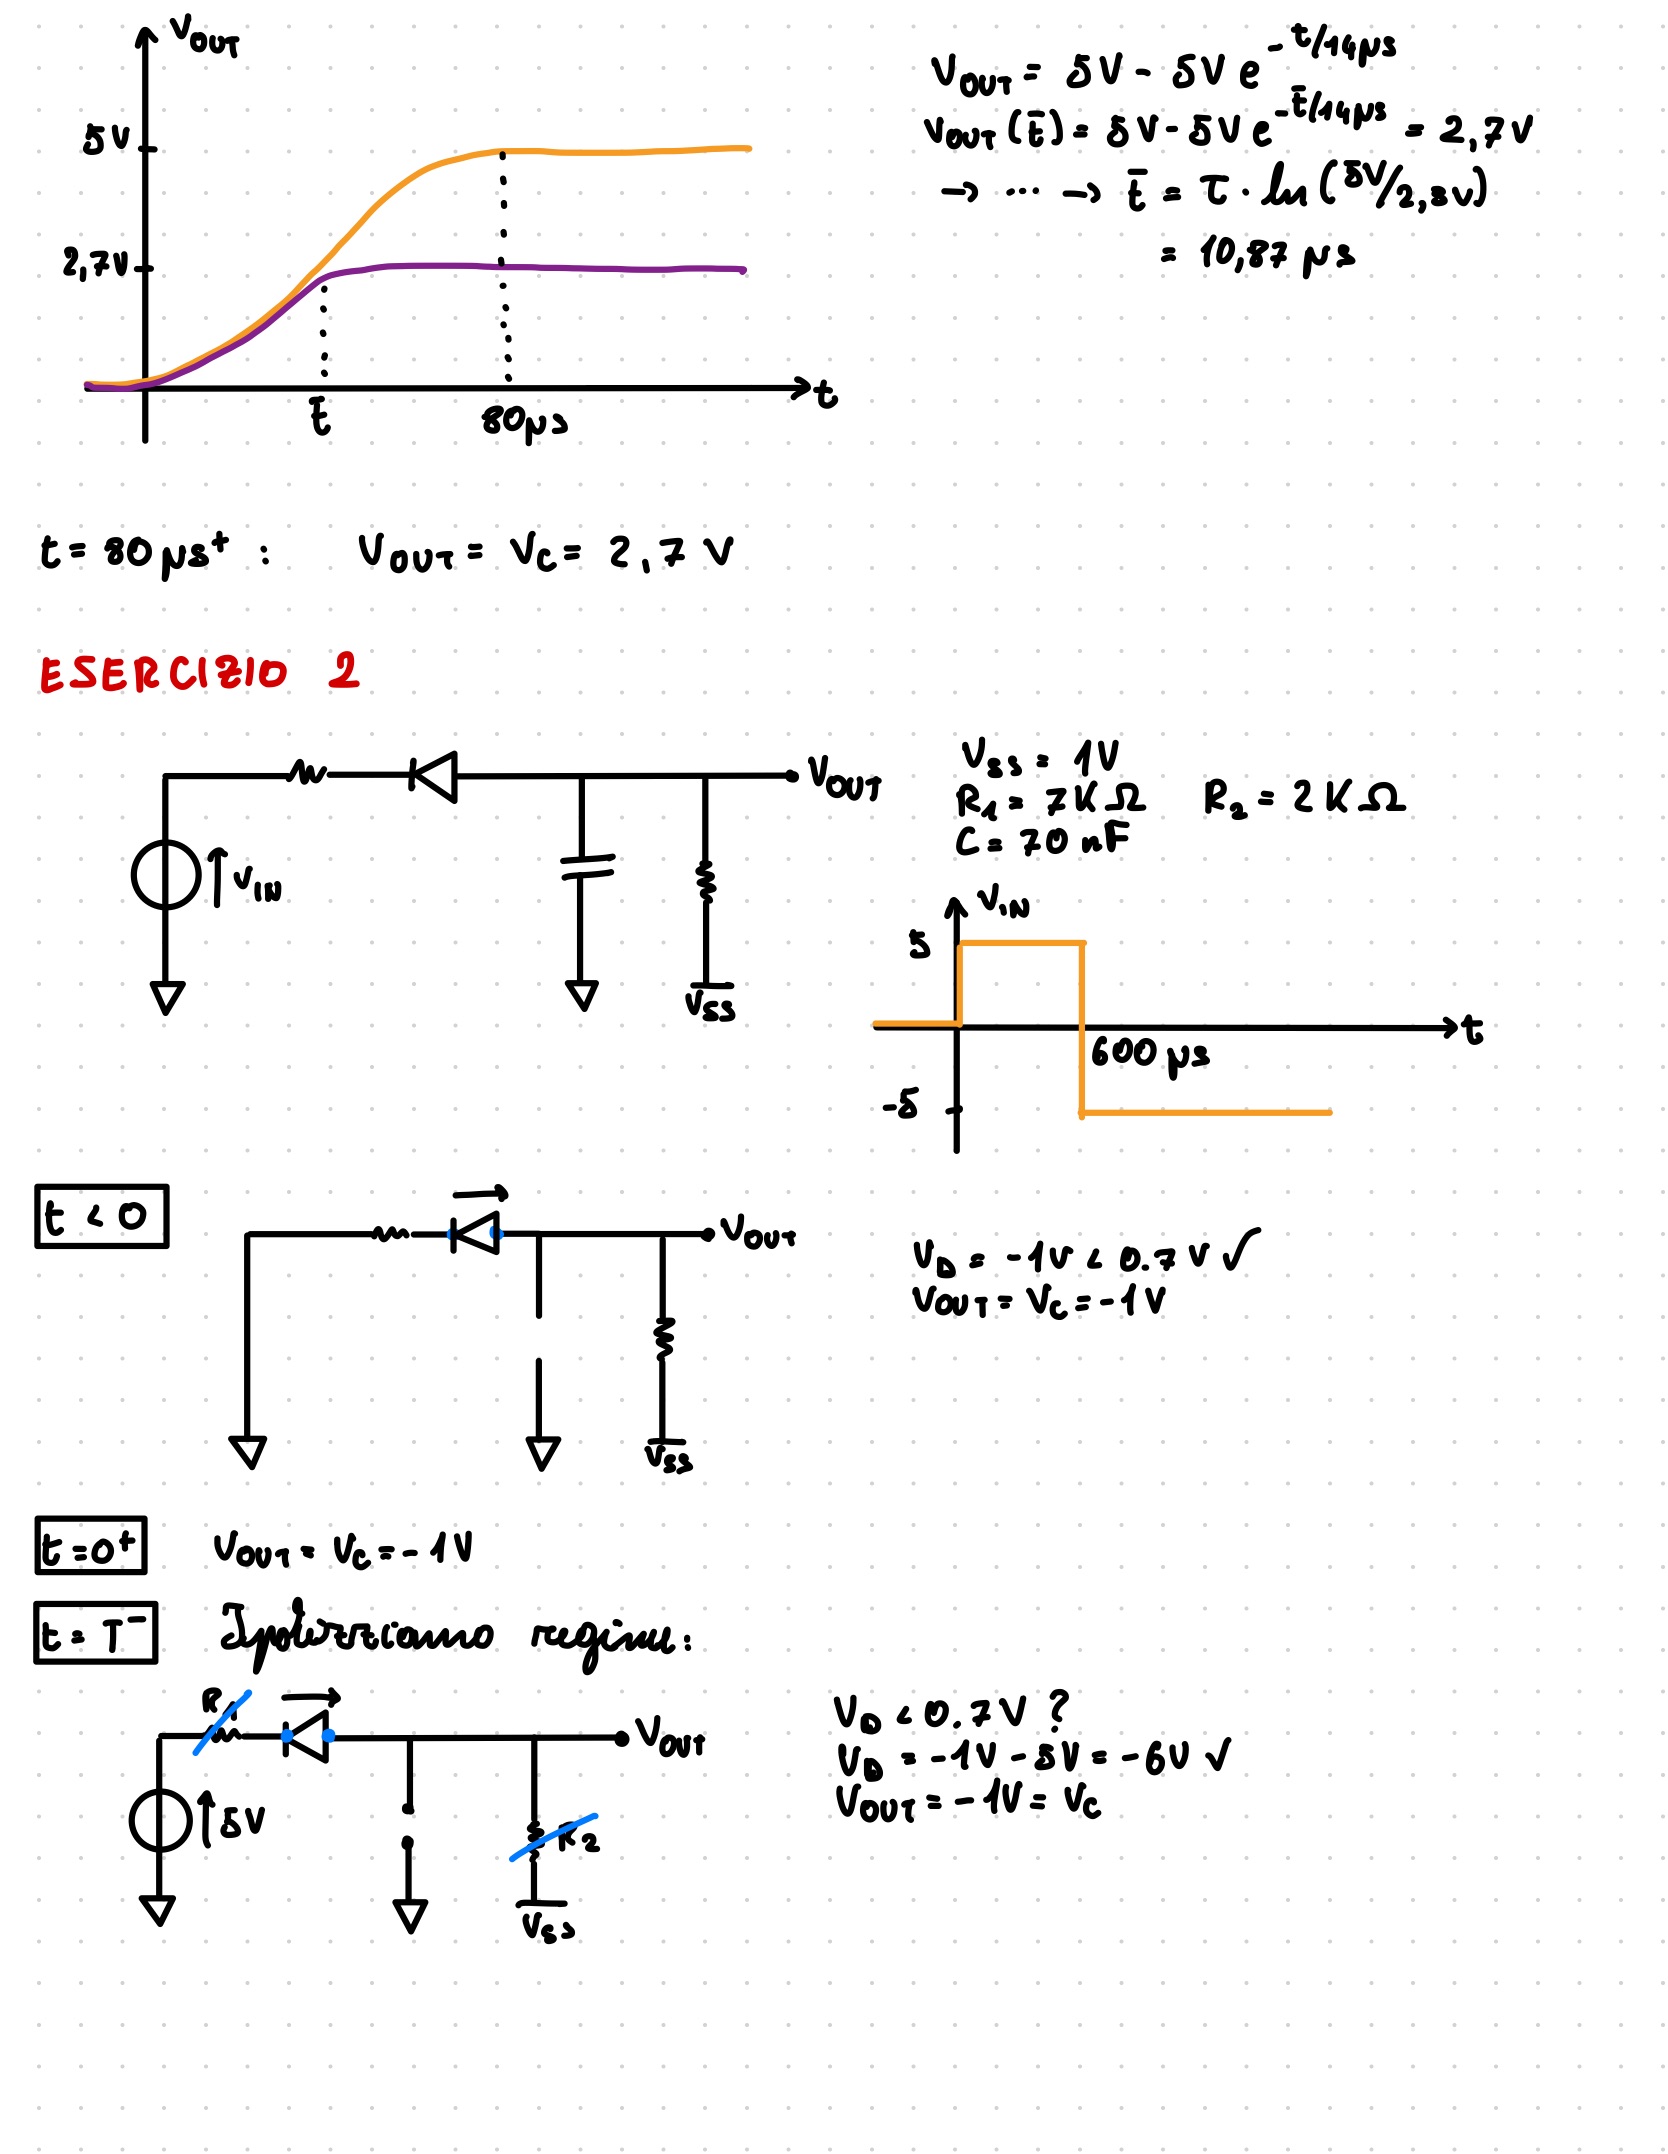 VOUT
5V
2,7V
t̄
80μs
t
VOUT = 5V - 5V e^-t/14μs
VOUT (t̄) = 5V - 5V e^-t̄/14μs = 2,7V
→ ... → t̄ = τ · ln (5V/2,3V)
= 10,87 μs
t = 80μs⁺ : VOUT = VC = 2,7 V
ESERCIZIO 2
VOUT
VIN
VSS
VSS = 1V
R1 = 7KΩ R2 = 2KΩ
C = 70 nF
VIN
5
t
600 μs
-5
t < 0
VOUT
VSS
VD = -1V < 0.7 V ✓
VOUT = VC = -1V
t = 0⁺ VOUT = VC = - 1V
t = T⁻ Ipotizziamo regime:
R1
VOUT
5V
R2
VSS
VD < 0.7V ?
VD = -1V - 5V = -6V ✓
VOUT = -1V = VC